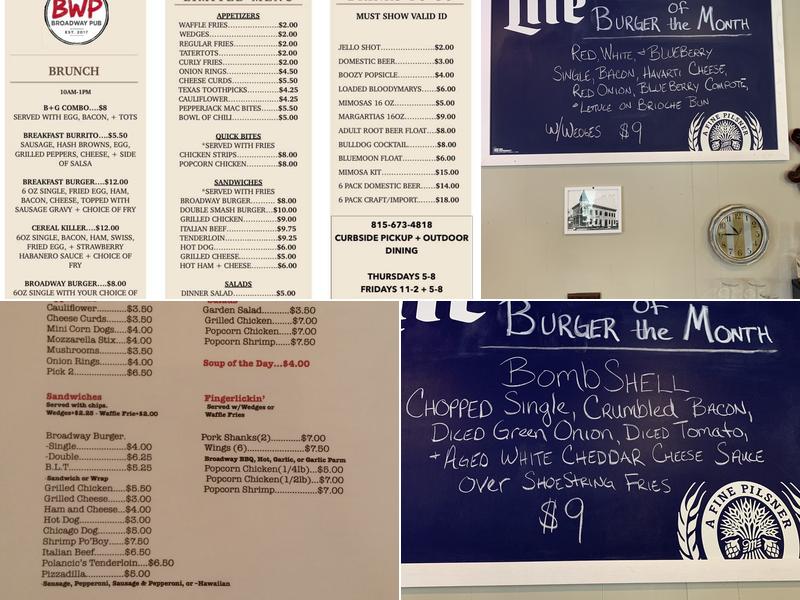 BWP
BROADWAY PUB
EST. 2017
BRUNCH
10AM-1PM
B+G COMBO....$8
SERVED WITH EGG, BACON, + TOTS
BREAKFAST BURRITO...$5.50
SAUSAGE, HASH BROWNS, EGG,
GRILLED PEPPERS, CHEESE, + SIDE
OF SALSA
BREAKFAST BURGER...$12.00
6 OZ SINGLE, FRIED EGG, HAM,
BACON, CHEESE, TOPPED WITH
SAUSAGE GRAVY + CHOICE OF FRY
CEREAL KILLER....$12.00
6OZ SINGLE, BACON, HAM, SWISS,
FRIED EGG, + STRAWBERRY
HABANERO SAUCE + CHOICE OF
FRY
BROADWAY BURGER....$8.00
6OZ SINGLE WITH YOUR CHOICE OF
APPETIZERS
WAFFLE FRIES...$2.00
WEDGES...$2.00
REGULAR FRIES...$2.00
TATERTOTS...$2.00
CURLY FRIES...$2.00
ONION RINGS...$4.50
CHEESE CURDS...$5.50
TEXAS TOOTHPICKS...$4.25
CAULIFLOWER...$4.25
PEPPERJACK MAC BITES...$5.50
BOWL OF CHILI...$5.00
QUICK BITES
*SERVED WITH FRIES
CHICKEN STRIPS...$8.00
POPCORN CHICKEN...$8.00
SANDWICHES
*SERVED WITH FRIES
BROADWAY BURGER...$8.00
DOUBLE SMASH BURGER...$10.00
GRILLED CHICKEN...$9.00
ITALIAN BEEF...$9.75
TENDERLOIN...$9.25
HOT DOG...$6.00
GRILLED CHEESE...$5.00
HOT HAM + CHEESE...$6.00
SALADS
DINNER SALAD...$5.00
MUST SHOW VALID ID
JELLO SHOT...$2.00
DOMESTIC BEER...$3.00
BOOZY POPSICLE...$4.00
LOADED BLOODYMARYS...$6.00
MIMOSAS 16 OZ...$5.00
MARGARTIAS 16OZ...$9.00
ADULT ROOT BEER FLOAT...$8.00
BULLDOG COCKTAIL...$8.00
BLUEMOON FLOAT...$6.00
MIMOSA KIT...$15.00
6 PACK DOMESTIC BEER...$14.00
6 PACK CRAFT/IMPORT...$18.00
815-673-4818
CURBSIDE PICKUP + OUTDOOR
DINING
THURSDAYS 5-8
FRIDAYS 11-2 + 5-8
Lite
OF
BURGER the MONTH
RED, WHITE, + BLUEBERRY
SINGLE, BACON, HAVARTI CHEESE,
RED ONION, BLUEBERRY COMPOTE,
+ LETTUCE ON BRIOCHE BUN
W/WEDGES $9
A FINE PILSNER
Cauliflower...$3.50
Cheese Curds...$3.50
Mini Corn Dogs...$4.00
Mozzarella Stix...$4.00
Mushrooms...$3.50
Onion Rings...$4.00
Pick 2...$6.50
Sandwiches
Served with chips.
Wedges+$2.25 - Waffle Frie+$2.00
Broadway Burger.
-Single...$4.00
-Double...$6.25
B.L.T...$5.25
-Sandwich or Wrap
Grilled Chicken...$5.50
Grilled Cheese...$3.00
Ham and Cheese...$4.00
Hot Dog...$3.00
Chicago Dog...$5.00
Shrimp Po'Boy...$7.50
Italian Beef...$6.50
Polancic's Tenderloin...$6.50
Pizzadilla...$5.00
-Sausage, Pepperoni, Sausage & Pepperoni, or -Hawaiian
Garden Salad...$3.50
Grilled Chicken...$7.00
Popcorn Chicken...$7.00
Popcorn Shrimp...$7.50
Soup of the Day...$4.00
Fingerlickin'
Served w/Wedges or
Waffle Fries
Pork Shanks(2)...$7.00
Wings (6)...$7.50
Broadway BBQ, Hot, Garlic, or Garlic Parm
Popcorn Chicken(1/4lb)...$5.00
Popcorn Chicken(1/2lb)...$7.00
Popcorn Shrimp...$7.00
OF
BURGER the MONTH
BOMBSHELL
CHOPPED Single, CRUMBLED BACON,
DICED GREEN ONION, DICED TOMATO,
+ AGED WHITE CHEDDAR CHEESE SAUCE
OVER SHOESTRING FRIES
$9
A FINE PILSNER